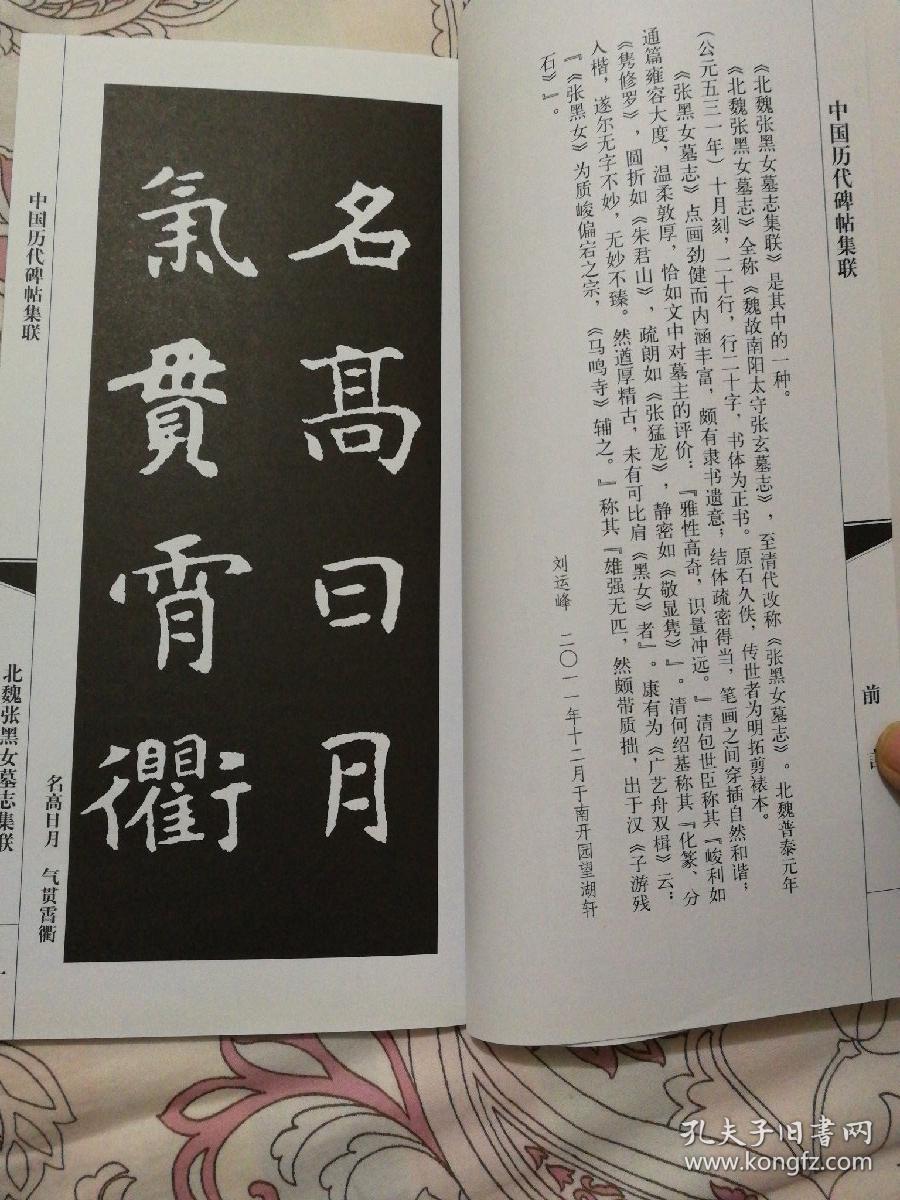 中国历代碑帖集联
前
《北魏张黑女墓志集联》是其中的一种。
《北魏张黑女墓志》全称《魏故南阳太守张玄墓志》，至清代改称《张黑女墓志》。北魏普泰元年
（公元五三一年）十月刻，二十行，行二十字，书体为正书。原石久佚，传世者为明拓剪裱本。
《张黑女墓志》点画劲健而内涵丰富，颇有隶书遗意；结体疏密得当，笔画之间穿插自然和谐；
通篇雍容大度，温柔敦厚，恰如文中对墓主的评价：『雅性高奇，识量冲远。』清包世臣称其『峻利如
《隽修罗》，圆折如《朱君山》，疏朗如《张猛龙》，静密如《敬显隽》』。清何绍基称其『化篆、分
入楷，遂尔无字不妙，无妙不臻。然遒厚精古，未有可比肩《黑女》者』。康有为《广艺舟双楫》云：
『《张黑女》为质峻偏宕之宗，《马鸣寺》辅之。』称其『雄强无匹，然颇带质拙，出于汉《子游残
石》』。
刘运峰 二〇一一年十二月于南开园望湖轩
名高日月
氣貫霄衢
名高日月 气贯霄衢
中国历代碑帖集联
北魏张黑女墓志集联
一
孔夫子旧书网
www.kongfz.com